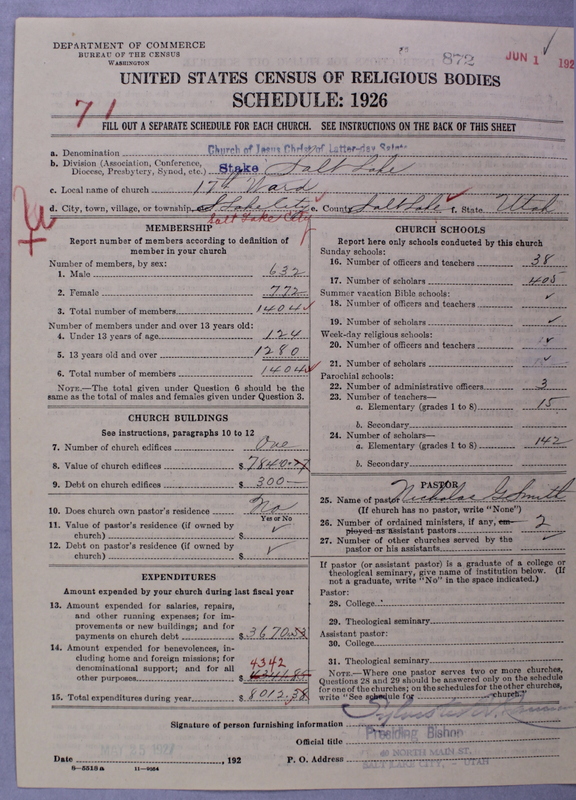 DEPARTMENT OF COMMERCE
BUREAU OF THE CENSUS
WASHINGTON
872
JUN 1 192
UNITED STATES CENSUS OF RELIGIOUS BODIES
SCHEDULE: 1926
71
FILL OUT A SEPARATE SCHEDULE FOR EACH CHURCH. SEE INSTRUCTIONS ON THE BACK OF THIS SHEET
a. Denomination Church of Jesus Christ of Latter-day Saints
b. Division (Association, Conference,
Diocese, Presbytery, Synod, etc.) Stake Salt Lake
c. Local name of church 17th Ward
d. City, town, village, or township S Lake City e. County Salt Lake f. State Utah
Salt Lake City
MEMBERSHIP
Report number of members according to definition of
member in your church
Number of members, by sex:
1. Male 632
2. Female 772
3. Total number of members 1404
Number of members under and over 13 years old:
4. Under 13 years of age 124
5. 13 years old and over 1280
6. Total number of members 1404
NOTE.—The total given under Question 6 should be the
same as the total of males and females given under Question 3.
CHURCH BUILDINGS
See instructions, paragraphs 10 to 12
7. Number of church edifices One
8. Value of church edifices $ 7840.
9. Debt on church edifices $ 300—
10. Does church own pastor's residence? No
Yes or No
11. Value of pastor's residence (if owned by
church) $ ✓
12. Debt on pastor's residence (if owned by
church) $ ✓
EXPENDITURES
Amount expended by your church during last fiscal year
13. Amount expended for salaries, repairs,
and other running expenses; for im-
provements or new buildings; and for
payments on church debt $ 3670.53
14. Amount expended for benevolences, in-
cluding home and foreign missions; for
denominational support; and for all
other purposes $ 4342 4341.85
15. Total expenditures during year $ 8012.38
CHURCH SCHOOLS
Report here only schools conducted by this church
Sunday schools:
16. Number of officers and teachers 38
17. Number of scholars 405
Summer vacation Bible schools:
18. Number of officers and teachers ✓
19. Number of scholars ✓
Week-day religious schools:
20. Number of officers and teachers ✓
21. Number of scholars ✓
Parochial schools:
22. Number of administrative officers 3
23. Number of teachers—
a. Elementary (grades 1 to 8) 15
b. Secondary
24. Number of scholars—
a. Elementary (grades 1 to 8) 142
b. Secondary
PASTOR
25. Name of pastor Nicholas G Smith
(If church has no pastor, write "None")
26. Number of ordained ministers, if any, em-
ployed as assistant pastors 2
27. Number of other churches served by the
pastor or his assistants
If pastor (or assistant pastor) is a graduate of a college or
theological seminary, give name of institution below. (If
not a graduate, write "No" in the space indicated.)
Pastor:
28. College
29. Theological seminary
Assistant pastor:
30. College
31. Theological seminary
NOTE.—Where one pastor serves two or more churches,
Questions 28 and 29 should be answered only on the schedule
for one of the churches; on the schedules for the other churches,
write "See schedule for church")
Signature of person furnishing information
Official title Presiding Bishop
MAY 25 1927
40 NORTH MAIN ST.
Date , 192 P. O. Address SALT LAKE CITY, - UTAH
8—5518a 11—9084